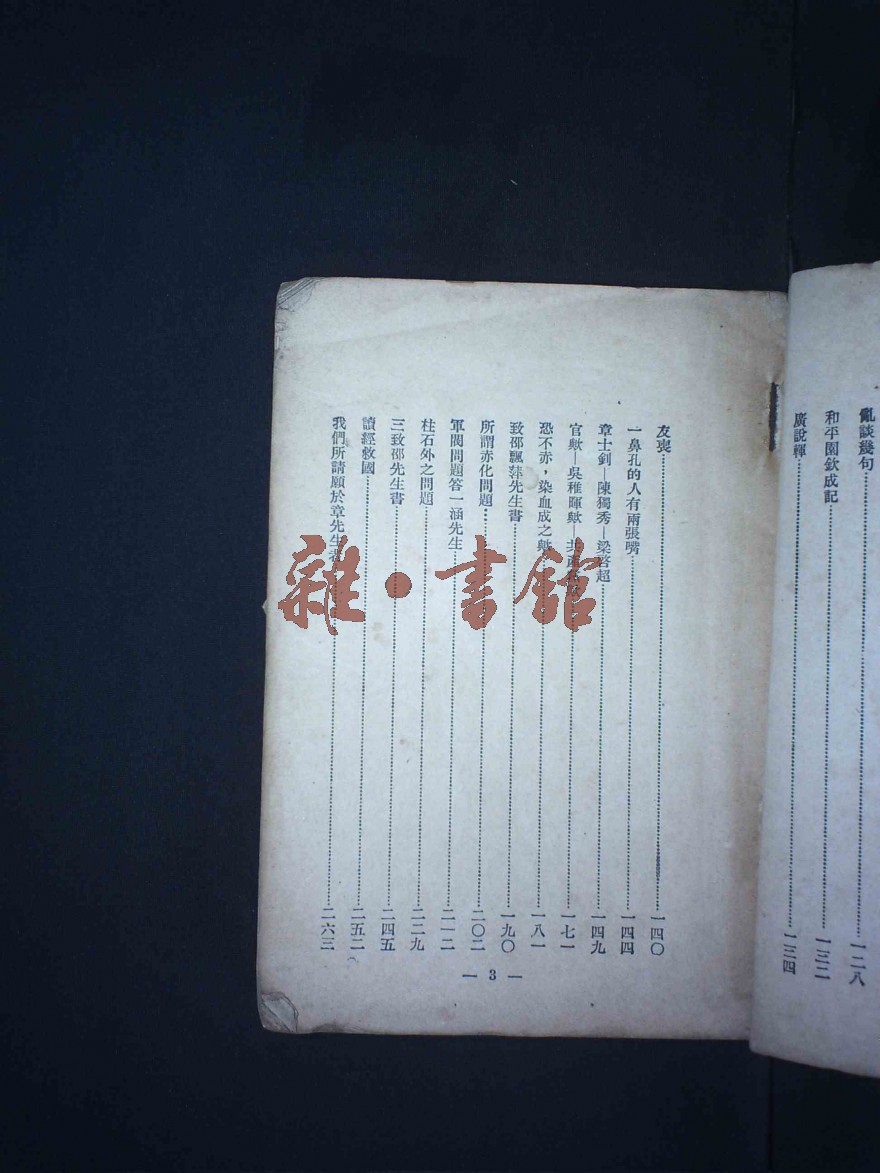 亂談幾句……一二八
和平園欽成記……一三二
廣說輝……一三四
友喪……一四〇
一鼻孔的人有兩張嘴……一四四
章士釗—陳獨秀—梁啓超……一四九
官歟—吳稚暉歟—共產黨歟……一七一
恐不赤，染血成之歟……一八一
致邵飄萍先生書……一九〇
所謂赤化問題……二〇二
軍閥問題答一涵先生……二一二
柱石外之問題……二二九
三致邵先生書……二四五
讀經救國……二五二
我們所請願於章先生者……二六三
— 3 —
雜·書館